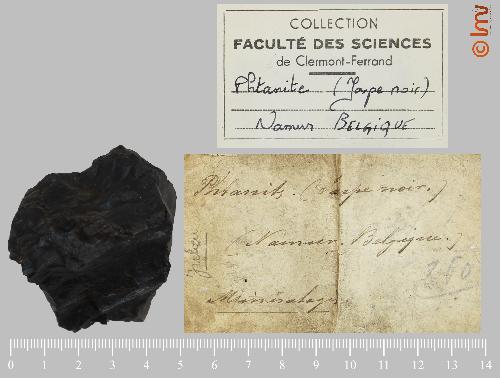 COLLECTION
FACULTÉ DES SCIENCES
de Clermont-Ferrand
Phtanite (Jaspe noir)
Namur BELGIQUE
© lmv
Phtanite. (Jaspe noir.)
(Namur. Belgique.)
250
Minéralogie
0 1 2 3 4 5 6 7 8 9 10 11 12 13 14